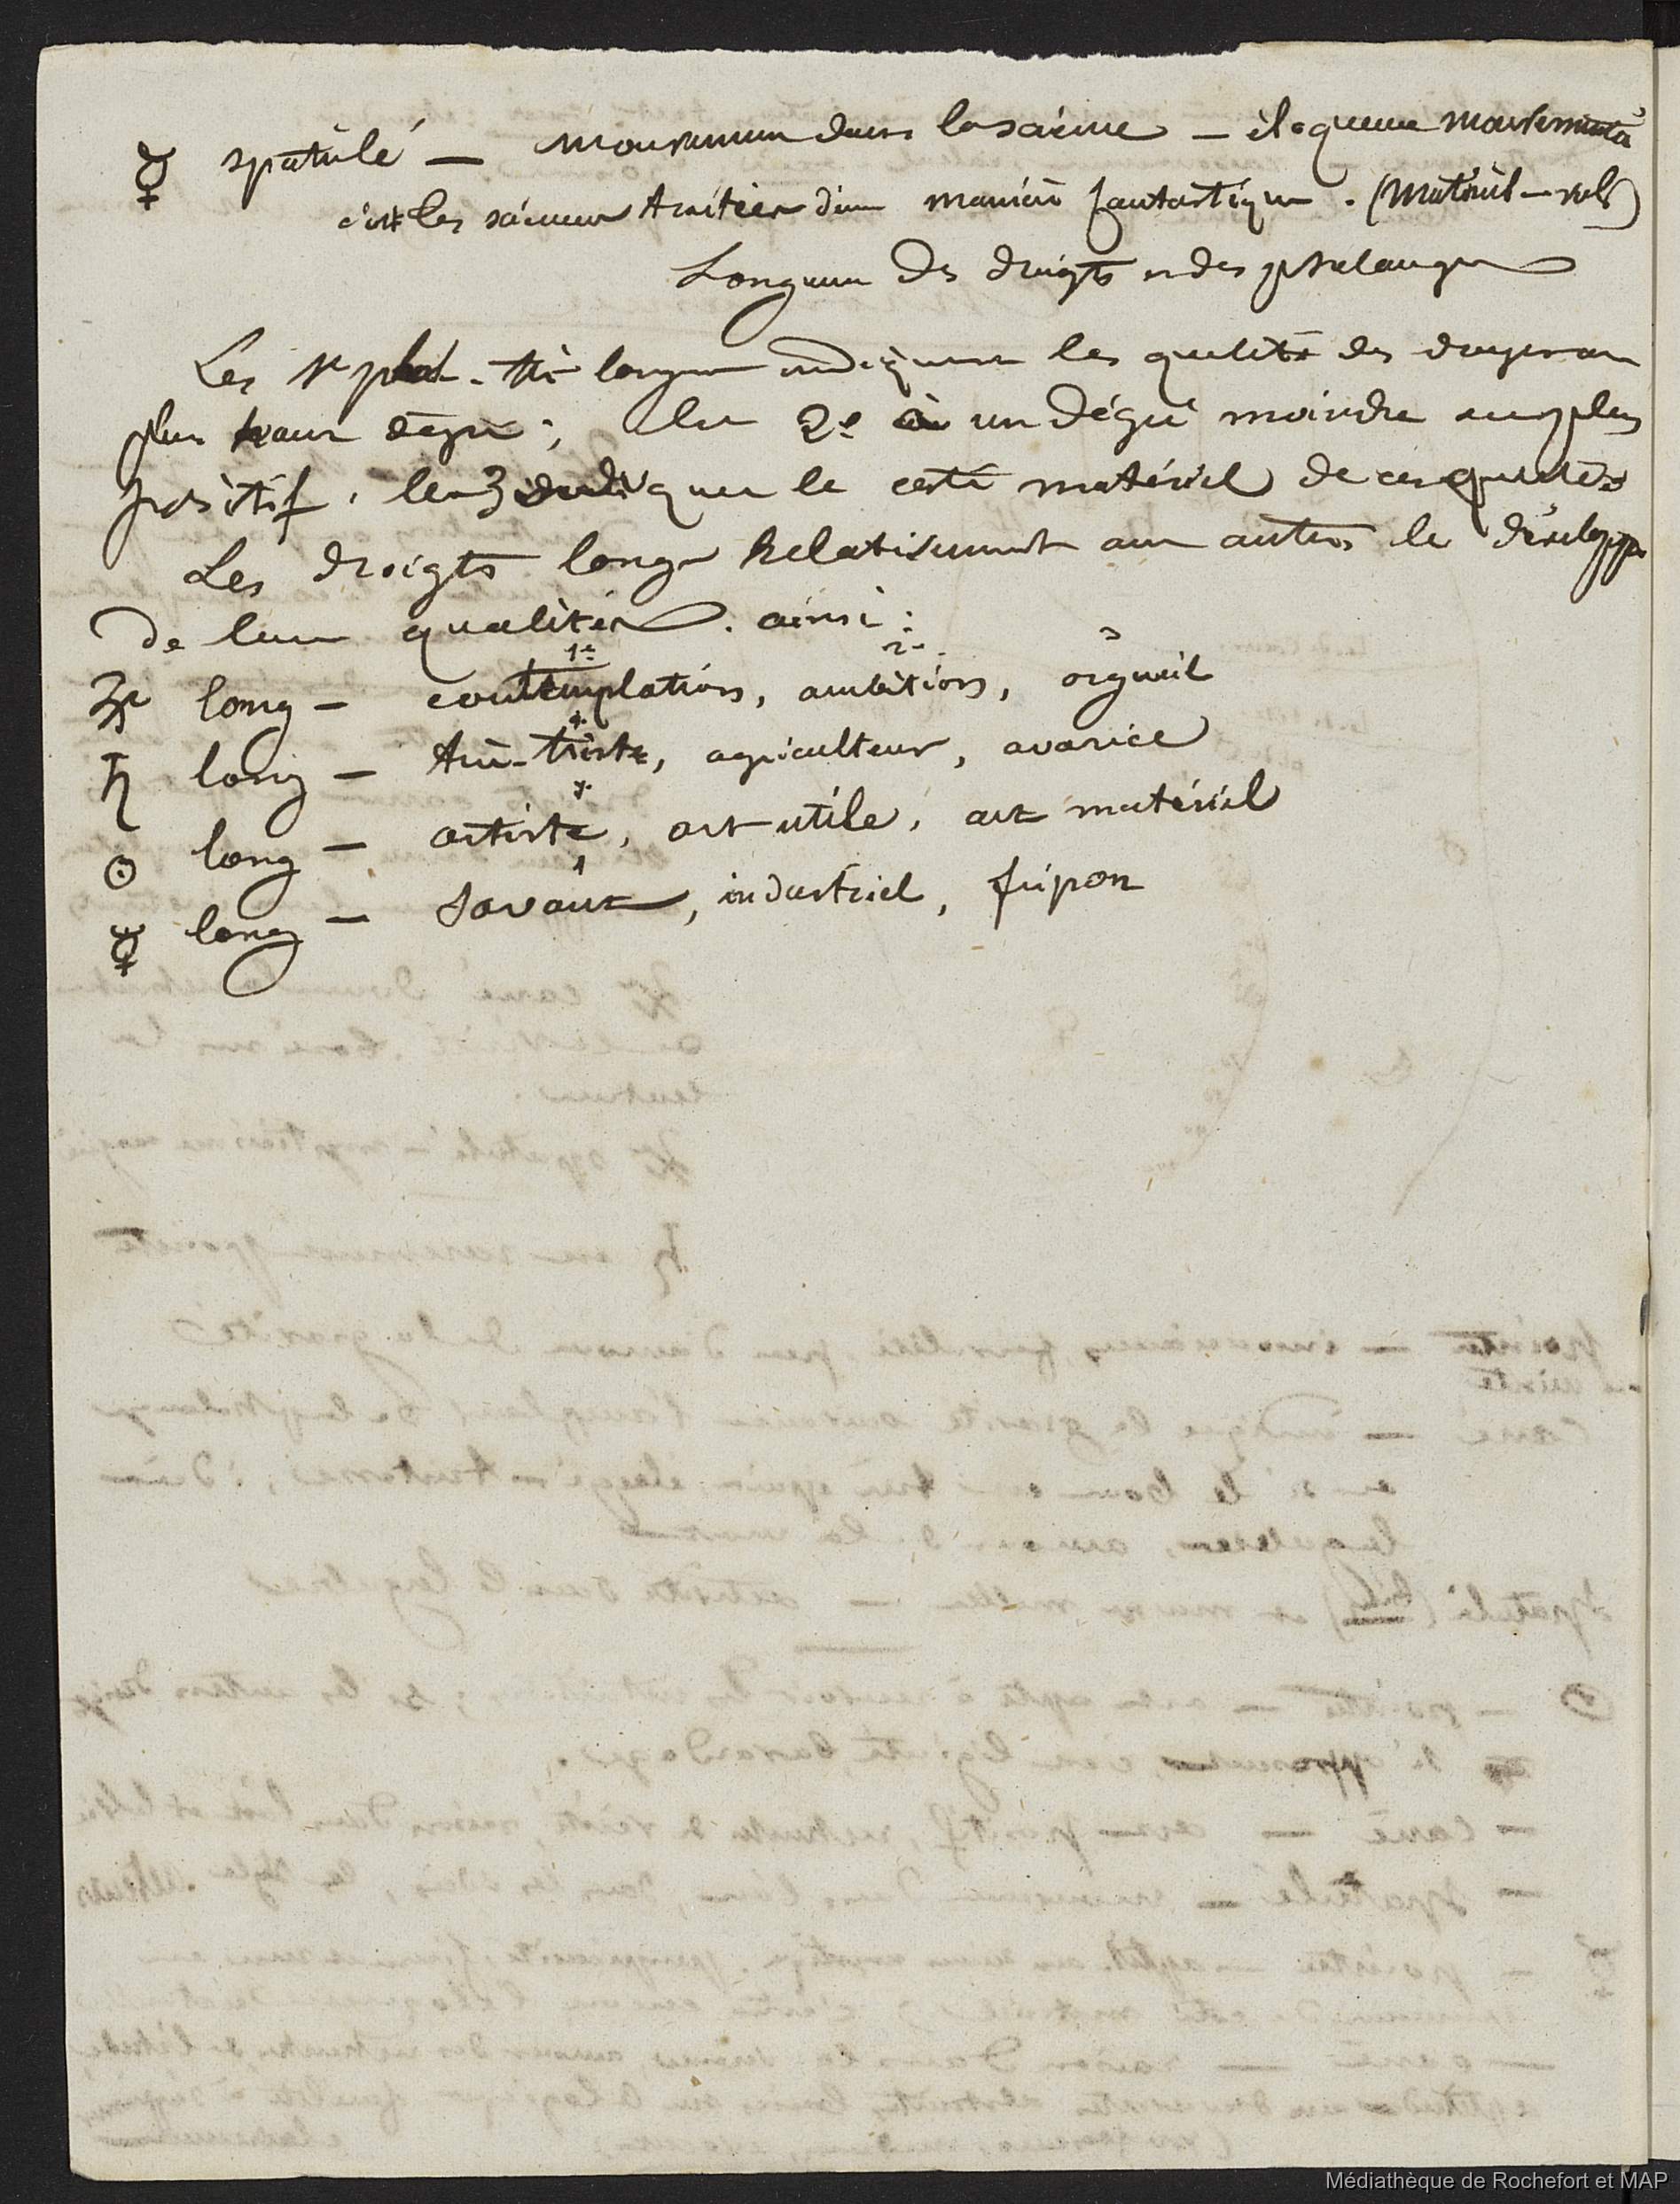 ☿ spatulé — mouvement dans la science — éloquence mouvementée
c'est les sciences traitées d'une manière fantastique. (
Longueur des doigts et des phalanges
Les 1e phal. très longues indiquent les qualités des doigts au
plus haut degré; les 2e à un degré moindre ou plus
positif, les 3 indiquent le côté matériel de ces qualités
Les doigts longs relativement aux autres le développt
de leurs qualités. ainsi :
1e 2e 3
♃ long — contemplation, ambition, orgueil
♄ long — très-triste, agriculteur, avarice
☉ long — artiste, art utile, art matériel
☿ long — savant, industriel, fripon
Médiathèque de Rochefort et MAP